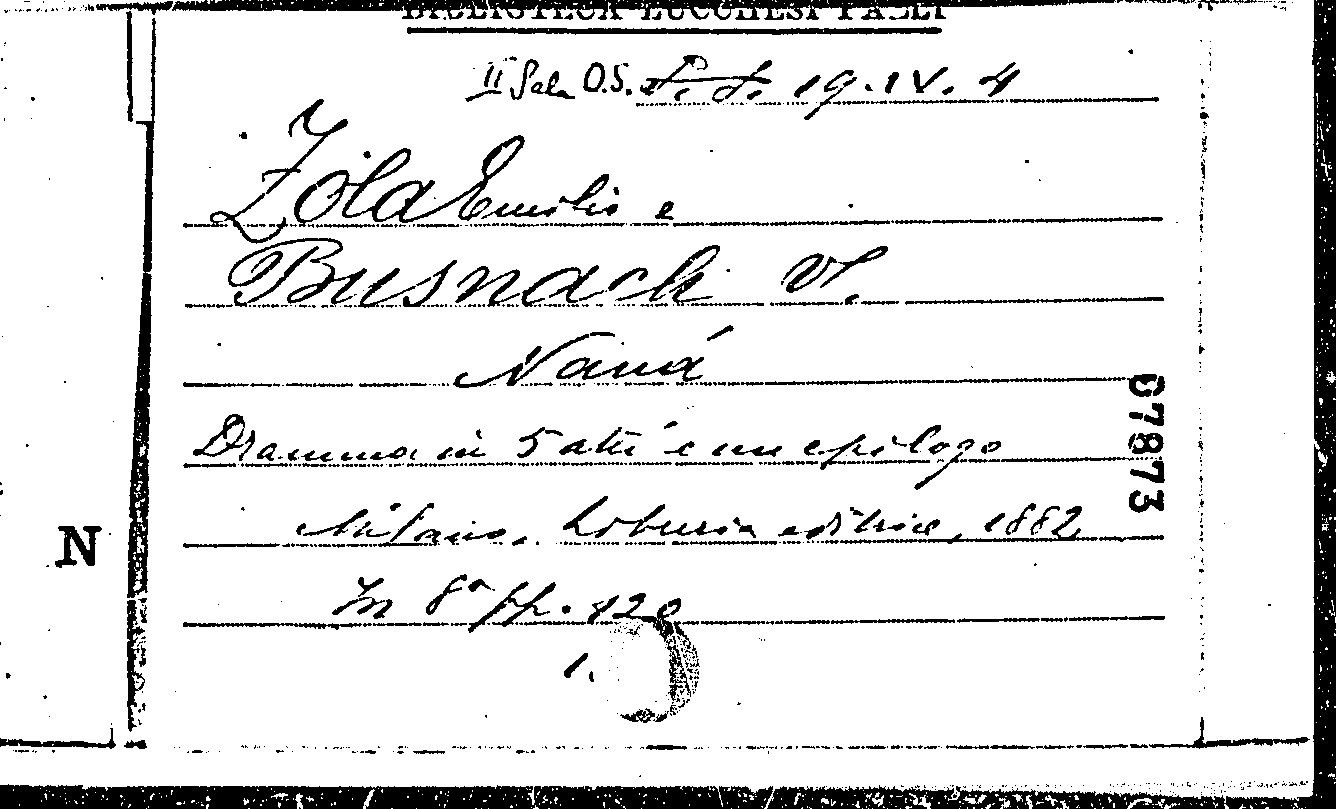 BIBLIOTECA LUCCHESI PALLI
II Sala O.S. 19.IV.4
Zola Emilio e
Busnach W.
Naná
Dramma in 5 atti e un epilogo
Milano, editrice, 1882
In 8° pp. 120
1.
67873
N